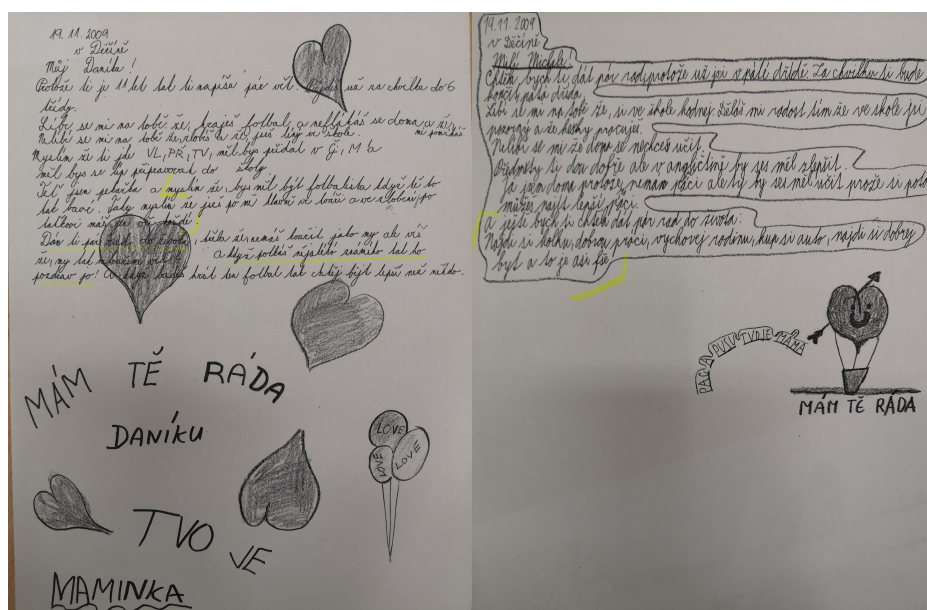 19.11.2009
v Děčíně
Můj Daníku!
Protože ti je 11 let tak ti napíšu pár vět. už za chvilku do 6
třídy.
Líbí se mi na tobě že, hraješ fotbal, a neflákáš se doma a že,
mi pomáháš
Nelíbí se mi na tobě že, zlobíš a že, jseš líný ve škole.
Myslím že ti jde VL, PŘ, TV, měl bys přidat v Čj, M a
měl bys se líp připravovat do školy
Teď jsem a myslím že, bys měl být fotbalista když tě to
tak baví. Tady myslím se jseš po mě hlavně ve tváři a po
taťkovi máš
Dám ti pár rad do života, třeba že, nemáš kouřit jako my ale víš
že, my tak A když potkáš nějakého známého tak ho
pozdrav jo! A když budeš hrát ten fotbal tak chtěj být lepší než někdo.
MÁM TĚ RÁDA
DANÍKU
LOVE
LOVE
LOVE
TVO VE
MAMINKA
19.11.2009
v Děčíně
Milý Micháli
Chtěla bych ti, dát pár rad protože už jsi v páté třídě. Za chvilku ti bude
končit pátá třída.
Líbí se mi na tobě že, si ve škole hodnej. Děláš mi radost tím že ve škole jsi
pozorný a že hezky pracuješ.
Nelíbí se mi že doma se nechceš učit.
Předměty ti dou dobře ale v angličtině by ses měl zlepšit.
Ja jsem doma protože, nemám práci ale ty by ses měl učit si potom
můžeš najít lepší práci.
A ještě bych ti chtěla dát pár rad do života:
Najdi si holku, dobrou práci, vychovej rodinu, kup si auto, najdi si dobrej
byt a to je asi vše.
PAC A PUSU TVOJE MÁMA
MÁM TĚ RÁDA